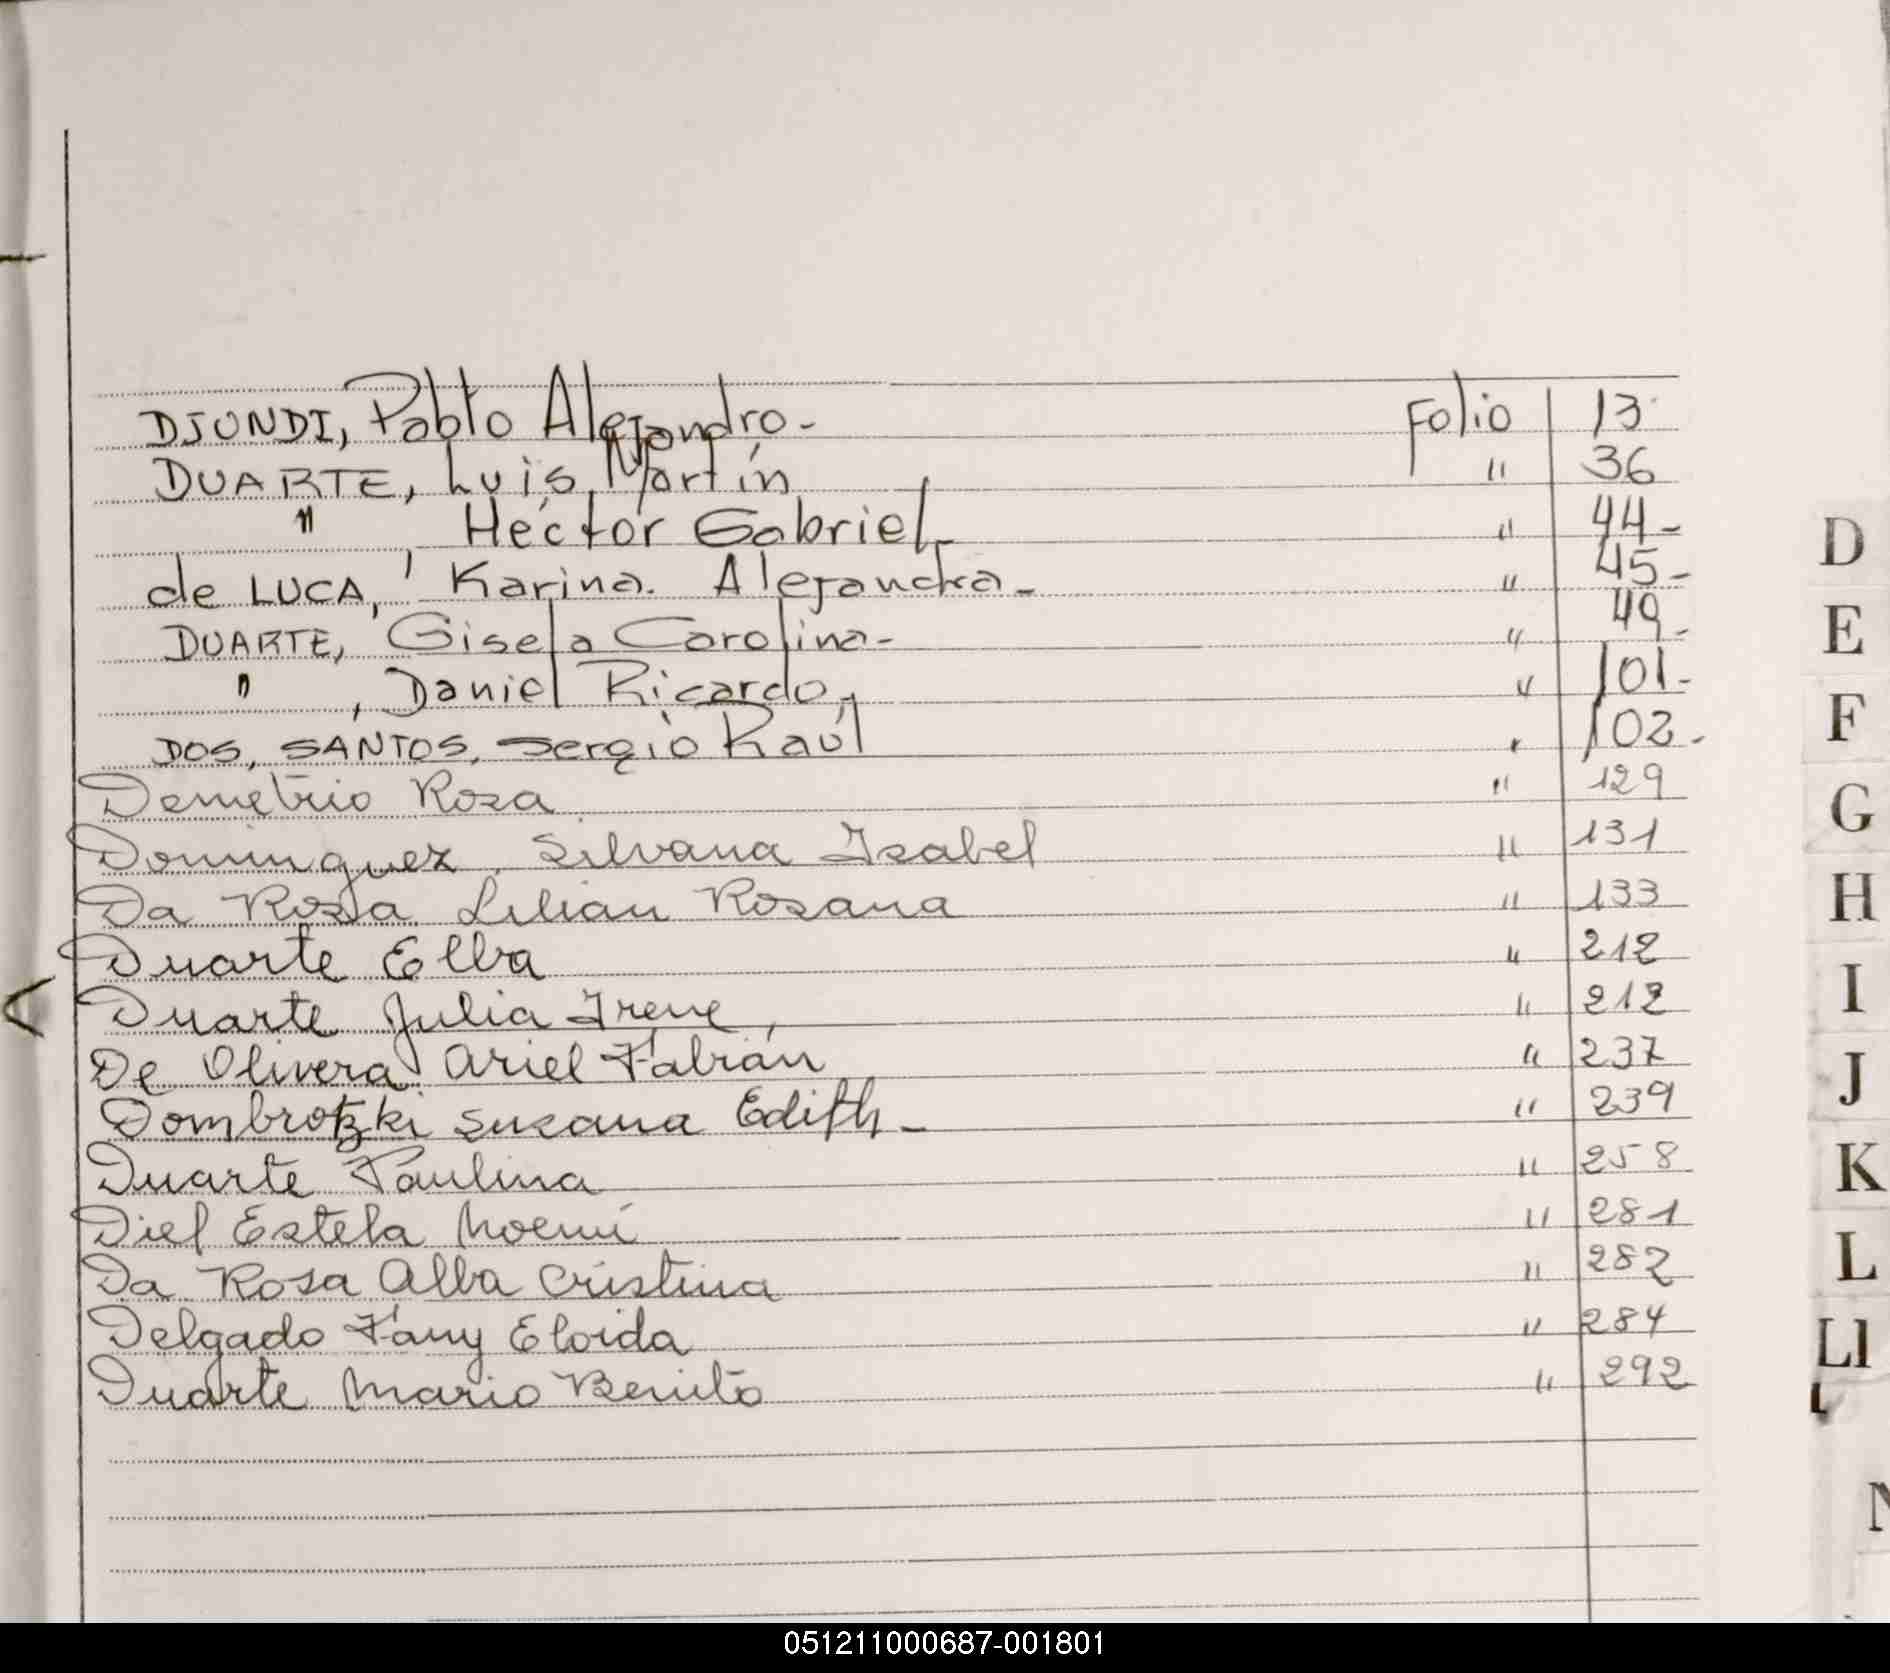 DJUNDI, Pablo Alejandro- Folio 13
DUARTE, Luis Martín " 36
" , Héctor Gabriel- " 44-
de LUCA, Karina Alejandra- " 45-
DUARTE, Gisela Carolina- " 49-
" , Daniel Ricardo, " 101-
DOS, SANTOS, Sergio Raúl " 102-
Demetrio Rosa " 129
Dominguez, Silvana Isabel " 131
Da Rosa Lilian Rosana " 133
Duarte Elba " 212
Duarte Julia Irene, " 212
De Olivera Ariel Fabián " 237
Dombrotzki Susana Edith- " 239
Duarte Paulina " 258
Diel Estela Noemí " 281
Da Rosa Alba Cristina " 282
Delgado Fany Eloida " 284
Duarte Mario Benito " 292
D
E
F
G
H
I
J
K
L
Ll
051211000687-001801